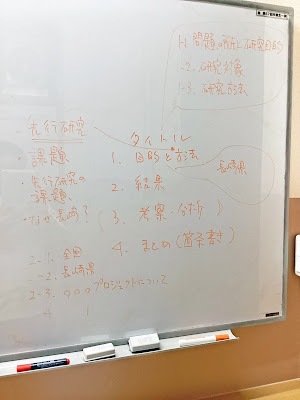 1-1 問題の所在と研究目的
1-2. 研究対象
1-3. 研究方法
・先行研究
課題
・先行研究の
課題
・なぜ長崎?
タイトル
1. 目的と方法
2. 結果
(3. 考察・分析)
4. まとめ(箇条書き)
長崎県
2-1. 全国
-2. 長崎県
2-3. 〇〇〇プロジェクトについて
4